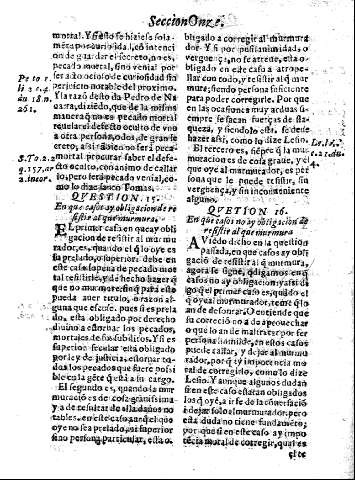 Seccion Onze,
mortal. Y si esto se hiziesse sola
méte por curiosidad, có intencion
de guardar el secreto, no es
pecado mortal, sino venial por
ser acto ocioso de curiosidad sin
perjuicio notable del proximo.
Y la razó desto da Pedro de Na
uarra, diziédo, que de la misma
manera q̃ no es pecado mortal
reuelar el defeto oculto de vno
a otra persona, o dos, de gran se
creto, assi tábien no serà peca
mortal procurar saber el defe-
cto oculto, con animo de callar
lo, pero serà pecado venial, co-
mo lo dize santo Tomas.
QVESTION. 15.
En que casos ay obligacion de re-
sistir al que murmura.
EL primer caso en que ay obli
gacion de resistir al murmu
rador, es, quando el q̃ lo oye es
su prelado, o superior: debe en
este caso so pena de pecado mor
tal resistirle, y de hecho hazer q̃
que no murmure sin q̃ para esto
pueda auer titulo, o razon al-
guna que escuse. pues si es prela
do, està obligado por derecho
diuino a estoruar los pecados,
mortales de sus subditos. Y si es
superior secular està obligado
por ley de justicia, a estoruar to-
dos los pecados que fuere possi
ble en la géte q̃ està a su cargo.
El segundo es, quando la mur
muració es de cosa grauissima
y a de resultar de alla daños no
tables. en este caso, aunque el que
oye no sea prelado, ni superior
sino persona particular, està o-
Pe to r.
li 2 c. 4.
nu 18. n.
261.
S. To. 2. 2
q. 157, ar
2. incor.
bligado a corregir al murmura
dor. Y si por pusilanimidad, o
verguença, no se atreue, està o-
bligado en este caso a atrope-
llar con todo, y resistir al q̃ mur
mura; siendo persona suficiente
para poder corregirle. Por que
en las ocasiones muy arduas si-
empre se sacan fuerças de fla-
queza, y siendolo està. se deue
hazer assi, como lo dize Lesio.
El tercero es, siépre q̃ la mur
muracion es de cosa graue, y el
que oye al murmurador, es per
sona que le puede resistir, sin
verguença, y sin inconueniente
alguno.
QVETION 16.
En que casos no ay obligacion de
resistir al que murmura
AViédo dicho en la question
passada, en que casos ay obli
gació de resistir al q̃ murmura,
agora se sigue, q̃ digamos en q̃
casos no ay obligacion y assi di
go q̃ el primer caso es, quádo el q̃
oye al murmurador, teme q̃ lo
an de desonrar. O entiende que
su correció no a de aprouechar
o que lo an de maltratar por ser
persona humilde, en estos casos
puede callar, y dejar al murmu
rador, por q̃ ay impotencia mo
tal de corregirlo, como lo dize
Lesio. Y aunque algunos dudan
si en este caso estarian obligados
los q̃ oyé, a irse de la conuersació
i dejar solo al murmurador. pero
esta duda no tiene fundaméto;
por que si en este caso ay impo
técia moral de corregir, qual es